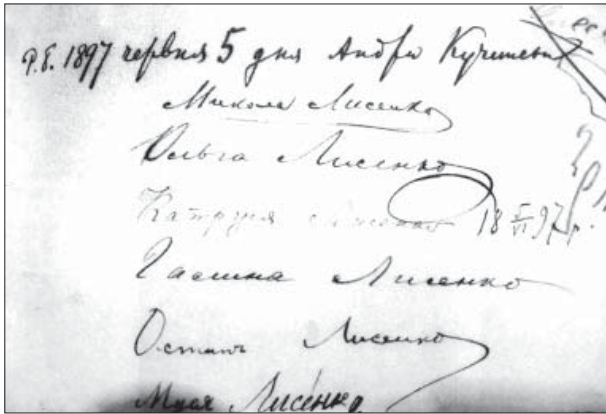 Р.Б. 1897 червня 5 дня Андрій Кучинський
Микола Лисенко
Ольга Лисенко
Катруся Лисенко 18 5/VI 97 р.
Галина Лисенко
Остап Лисенко
Лисенко